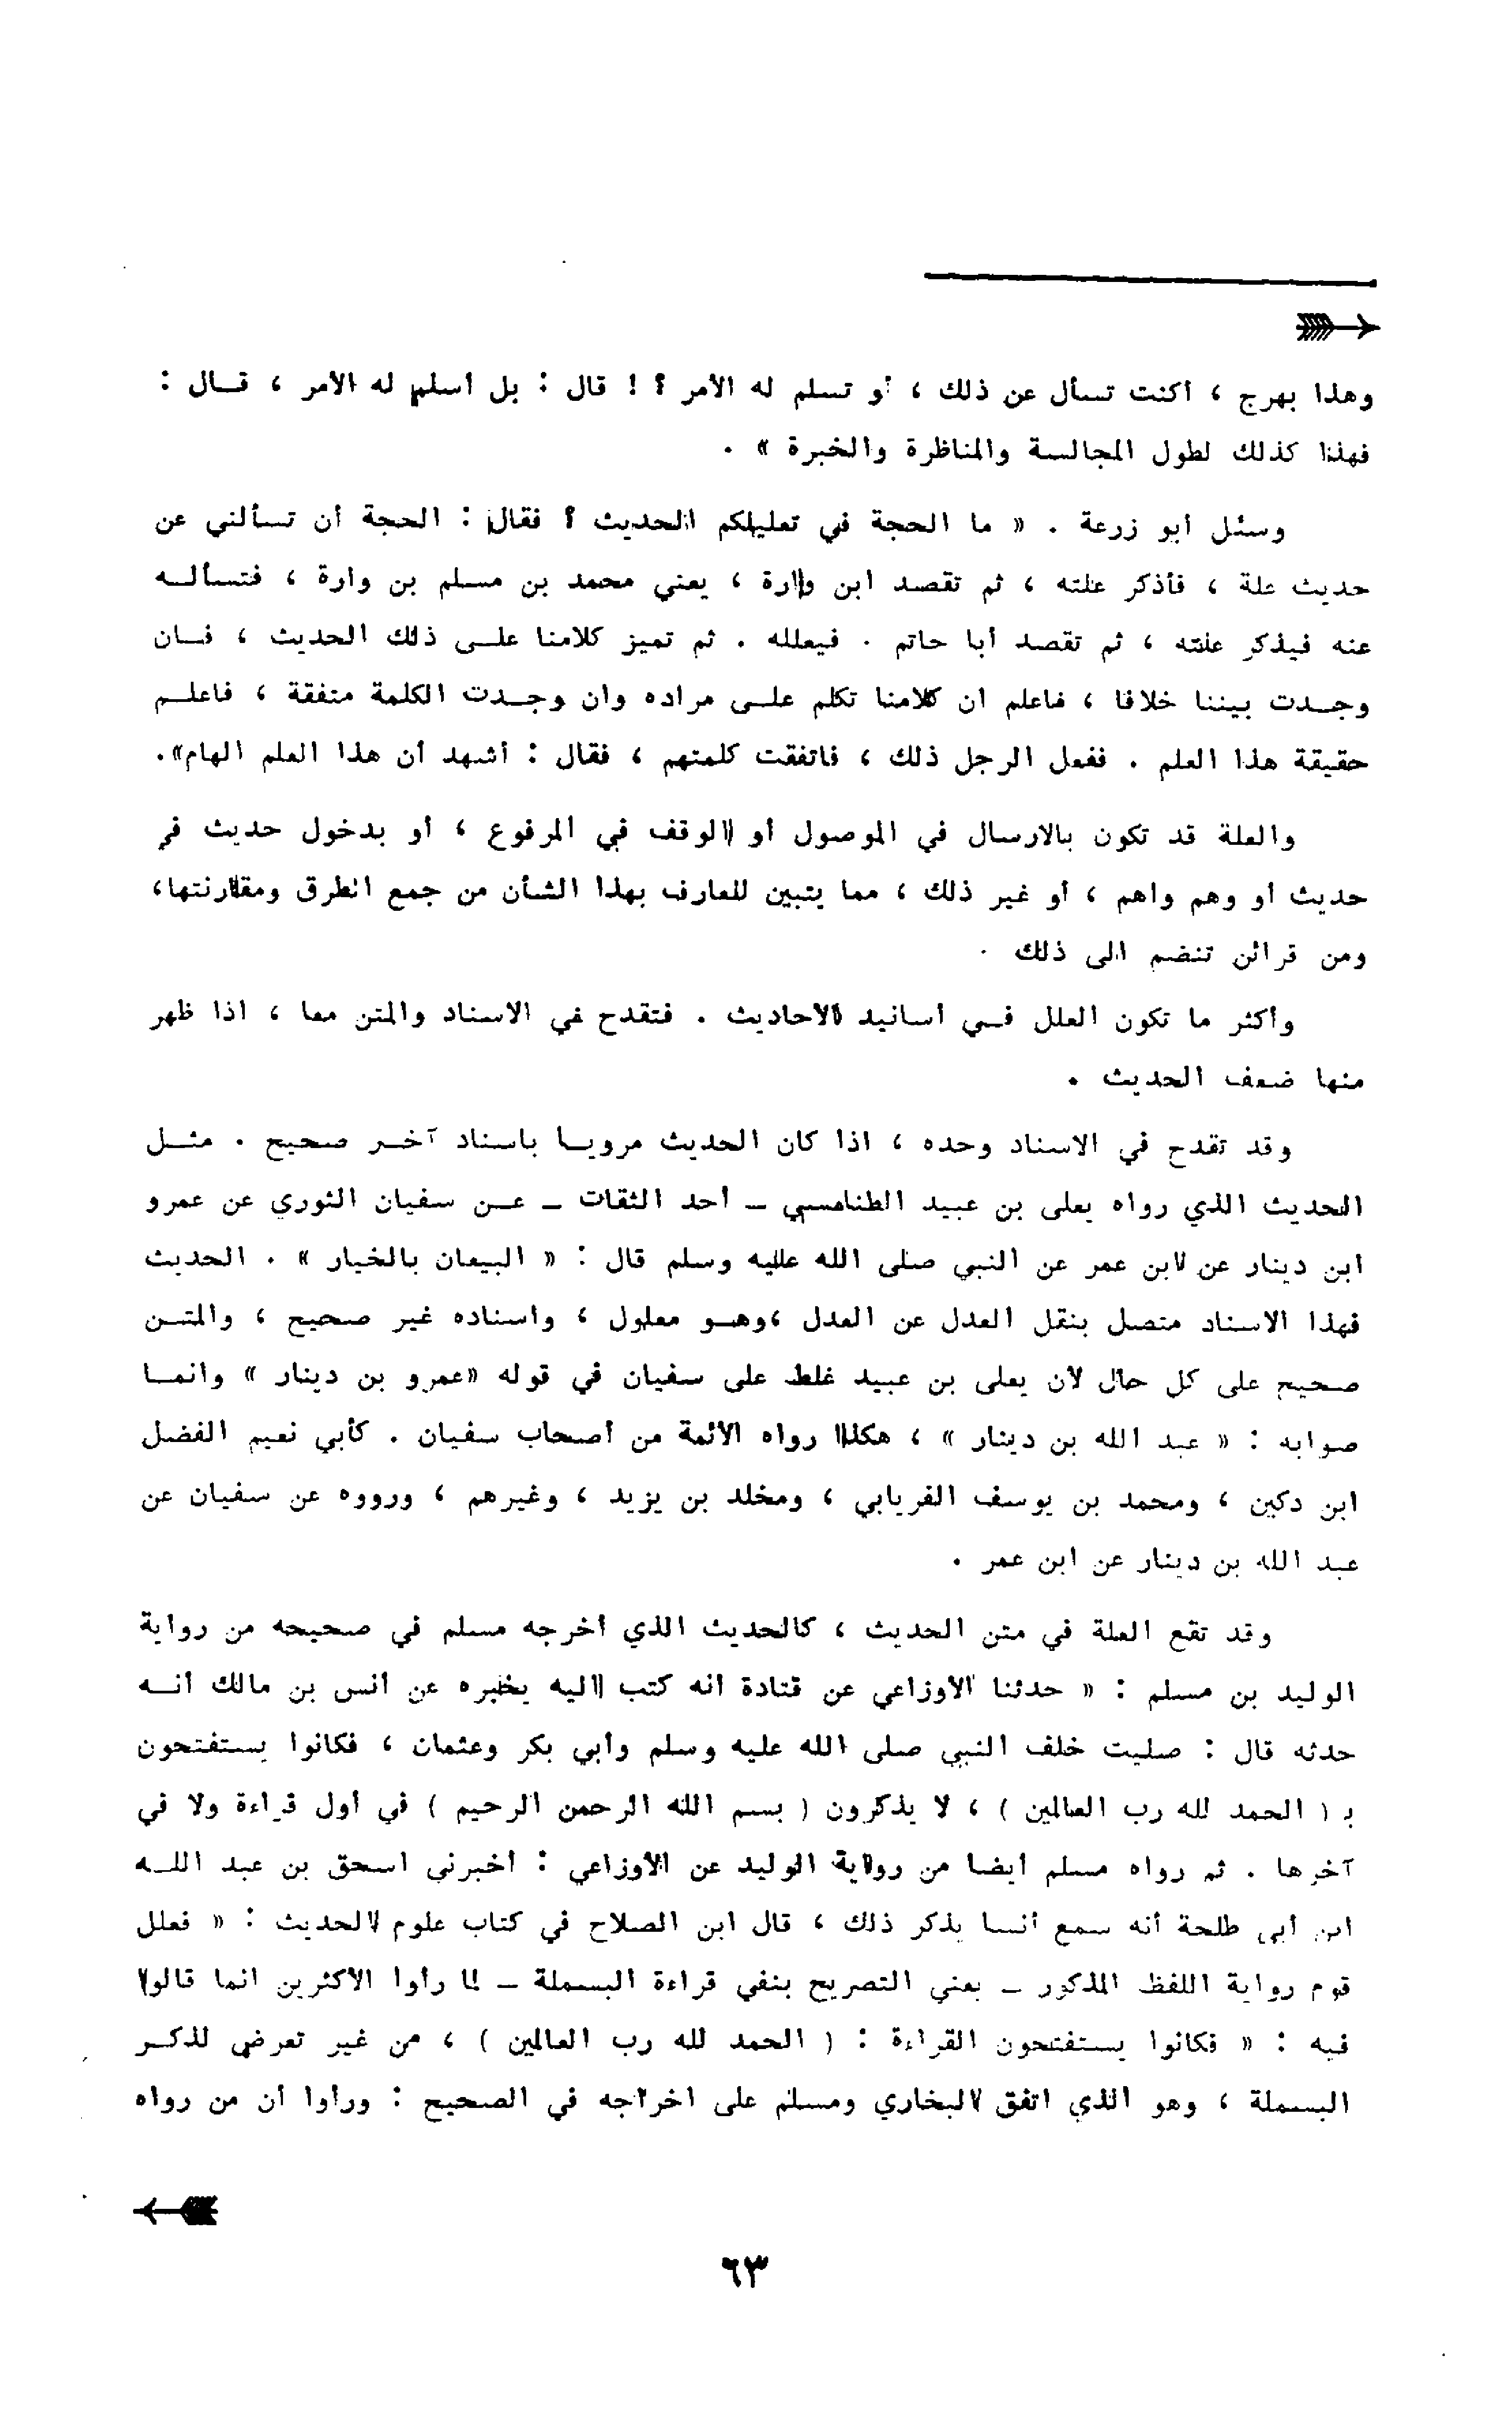 وهذا بهرج ، أكنت تسأل عن ذلك ، أو تسلم له الأمر ؟ ! قال : بل أسلم له الأمر ، قـال :
فهذا كذلك لطول المجالسة والمناظرة والخبرة » .
وسئل أبو زرعة . « ما الحجة في تعليلكم الحديث ؟ فقال : الحجة أن تسألني عن
حديث علة ، فأذكر علته ، ثم تقصد ابن وارة ، يعني محمد بن مسلم بن وارة ، فتسألـه
عنه فيذكر علته ، ثم تقصد أبا حاتم . فيعلله . ثم تميز كلامنا علـى ذلك الحديث ، فـان
وجـدت بيننا خلافا ، فاعلم ان كلامنا تكلم علـى مراده وان وجـدت الكلمة متفقة ، فاعلـم
حقيقة هذا العلم . ففعل الرجل ذلك ، فاتفقت كلمتهم ، فقال : أشهد أن هذا العلم الهام».
والعلة قد تكون بالارسال في الموصول أو الوقف في المرفوع ، أو بدخول حديث في
حديث أو وهم واهم ، أو غير ذلك ، مما يتبين للعارف بهذا الشأن من جمع الطرق ومقارنتها،
ومن قرائن تنضم الى ذلك .
وأكثر ما تكون العلل فـي أسانيد الأحاديث . فتقدح في الاسناد والمتن معا ، اذا ظهر
منها ضعف الحديث .
وقد تقدح في الاسناد وحده ، اذا كان الحديث مرويـا باسناد آخـر صحيح . مثـل
الحديث الذي رواه يعلى بن عبيد الطنافسي ــ أحد الثقات ــ عـن سفيان الثوري عن عمرو
ابن دينار عن ابن عمر عن النبي صلى الله عليه وسلم قال : « البيعان بالخيار » . الحديث
فهذا الاسناد متصل بنقل العدل عن العدل ،وهـو معلول ، واسناده غير صحيح ، والمتـن
صحيح على كل حال لان يعلى بن عبيد غلط على سفيان في قوله «عمرو بن دينار » وانمـا
صوابه : « عبد الله بن دينار » ، هكذا رواه الائمة من أصحاب سفيان . كأبي نعيم الفضل
ابن دكين ، ومحمد بن يوسف الفريابي ، ومخلد بن يزيد ، وغيرهم ، ورووه عن سفيان عن
عبد الله بن دينار عن ابن عمر .
وقد تقع العلة في متن الحديث ، كالحديث الذي أخرجه مسلم في صحيحه من رواية
الوليد بن مسلم : « حدثنا الأوزاعي عن قتادة انه كتب اليه يخبره عن أنس بن مالك أنـه
حدثه قال : صليت خلف النبي صلى الله عليه وسلم وأبي بكر وعثمان ، فكانوا يستفتحون
بـ ( الحمد لله رب العالمين ) ، لا يذكرون ( بسم الله الرحمن الرحيم ) في أول قراءة ولا في
آخرها . ثم رواه مسلم أيضا من رواية الوليد عن الأوزاعي : أخبرني اسحق بن عبد اللـه
ابن أبي طلحة أنه سمع أنسا يذكر ذلك ، قال ابن الصلاح في كتاب علوم الحديث : « فعلل
قوم رواية اللفظ المذكور ــ يعني التصريح بنفي قراءة البسملة ــ لما رأوا الاكثرين انما قالوا
فيه : « فكانوا يستفتحون القراءة : ( الحمد لله رب العالمين ) ، من غير تعرض لذكـر
البسملة ، وهو الذي اتفق البخاري ومسلم على اخراجه في الصحيح : ورأوا أن من رواه
٦٣